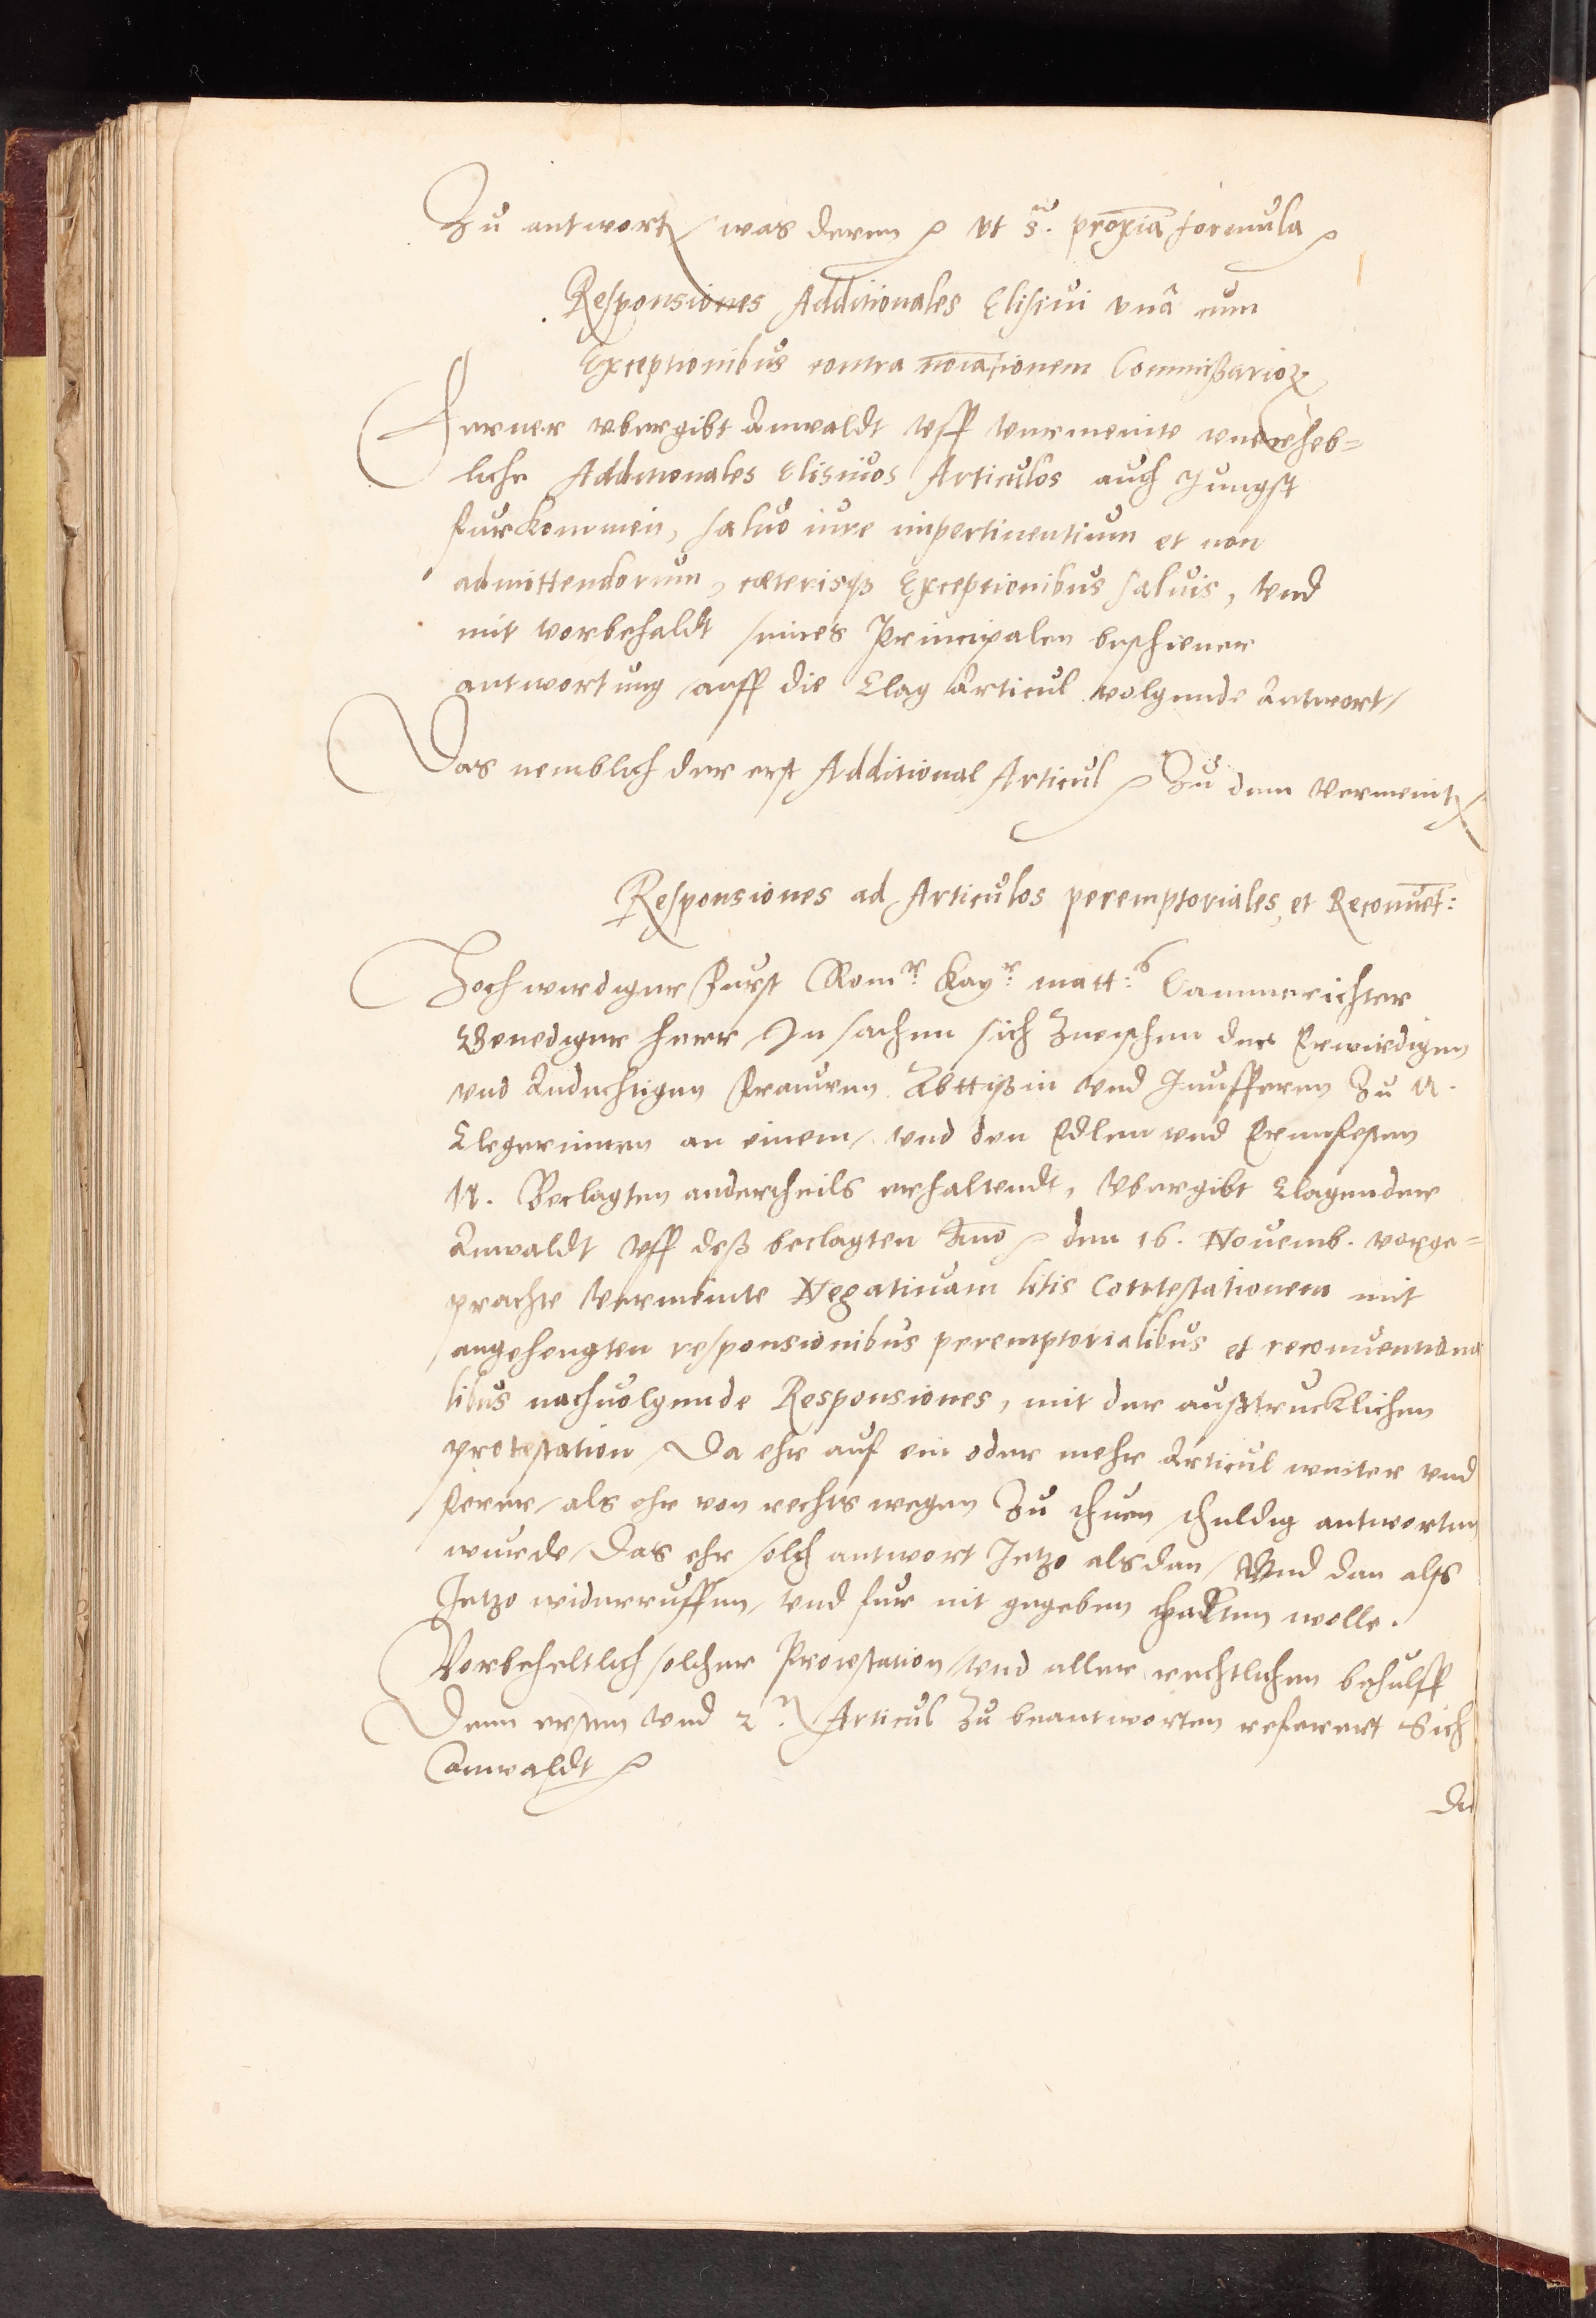 Zu antworten was deren ꝛc vt s. propria formula ꝛc
Responsiones Additionales Elisiui vnâ cum
Exceptionibus contra noiationem Commissarioꝝ
Ferner vbergibt Anwaldt vff vermeinte vnerheb=
liche Additionales Elisiuos Articulos auch Jungst
furkommen, saluo iure impertinentium et non
admittendorum, cæterisq; Exceptionibus saluis, vnd
mit vorbehaldt seines Principalen beschehener
antwortung auff die Clag Articul volgende Antwort/
Das nemblich der erst Additional Articul ꝛc Zu dem vermeinten
Responsiones ad Articulos peremptoriales, et Reconuet:
Hochwirdiger Furst Romr. Kayr. Matt: Cammerichter
Genediger herr, In sachen sich Zwischen der Erwirdigen
vnd Andechtigen Frauwen Abttissin vnd Junfferen Zu N.
Clegerinnen an einem, vnd den Edlen vnd Ernuesten
N. Beclagten anderntheils erhaltendt, vbergibt Clagender
Anwaldt vff deß beclagten Anno ꝛc den 16. Nouemb. vorge=
prachte vermeinte Negatiuam litis Contestationem mit
angehengten responsionibus peremptorialibus et reconuentiona
libus nachuolgende Responsiones, mit der außtrucklichen
protestation, Da ehr auf ein oder mehr Articul weiter vnd
ferner, als ehr von rechts wegen Zu thuen schuldig antworten
wurde, Das ehr solch antwort Jetzo alsdan, Vnd dan alss
Jetzo widerruffen, vnd fur nit gegeben halten wolle.
Vorbeheltlich solcher Protestation, vnd aller rechtlichen behulff
Dem ersten vnd 2.n Articul Zu beantworten referert sich
Anwaldt ꝛc